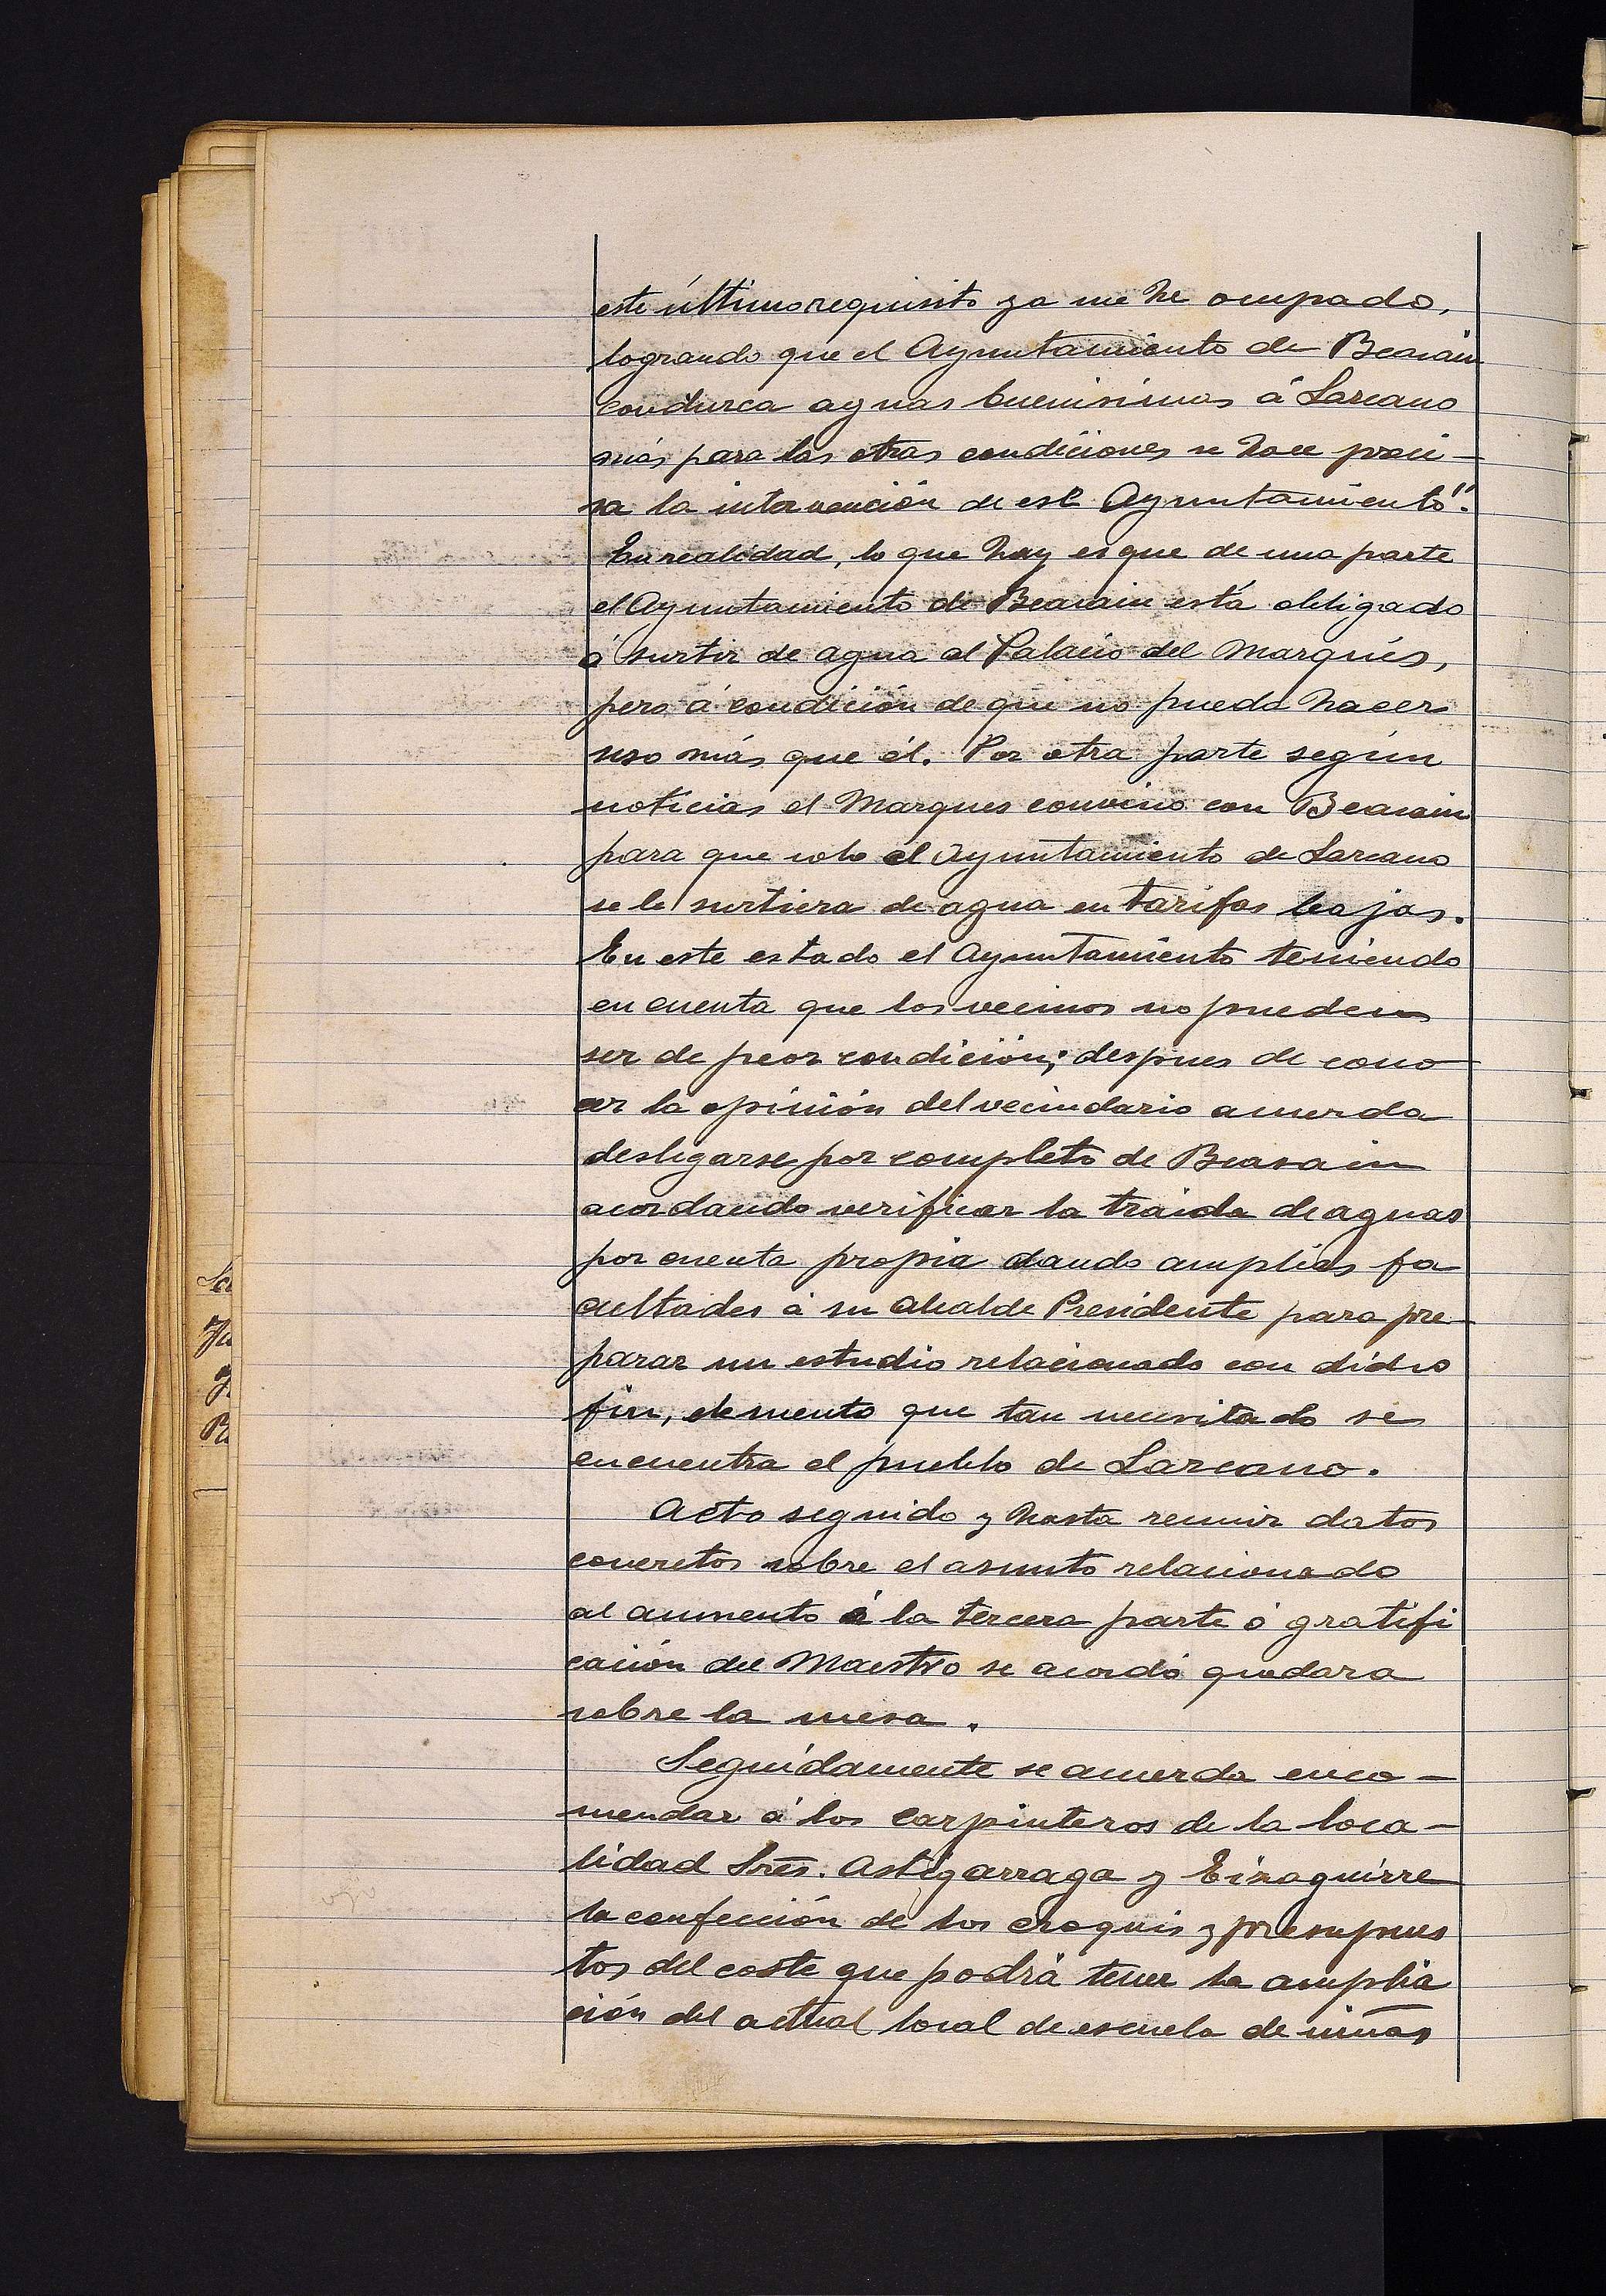 este último requisito ya me he ocupado,
logrando que el Ayuntamiento de Beasain
conduzca aguas buenisimas á Lazcano
más para las otras condiciones se hace preci-
sa la intervención de este Ayuntamiento".
En realidad, lo que hay es que de una parte
el Ayuntamiento de Beasain está obligado
á surtir de agua al Palacio del Marqués,
pero á condición de que no pueda hacer
uso más que él. Por otra parte según
noticias el Marques convino con Beasain
para que solo el Ayuntamiento de Lazcano
se le surtiera de agua en tarifas bajas.
En este estado el Ayuntamiento teniendo
en cuenta que los vecinos no pueden
ser de peor condición; despues de cono
cer la opinión del vecindario acuerda
desligarse por completo de Beasain
acordando verificar la traida de aguas
por cuenta propia dando amplias fa
cultades á su Alcalde Presidente para pre-
parar un estudio relacionado con dicho
fin, elemento que tan necesitado se
encuentra el pueblo de Lazcano.
Acto seguido y hasta reunir datos
concretos sobre el asunto relacionado
al aumento á la tercera parte ó gratifi
cación del Maestro se acordó quedara
sobre la mesa.
Seguidamente se acuerda enco-
mendar á los carpinteros de la loca-
lidad Sres. Astigarraga y Eizaguirre
la confección de los croquis y presupues
tos del coste que podrá tener la amplia
ción del actual local de escuela de niñas